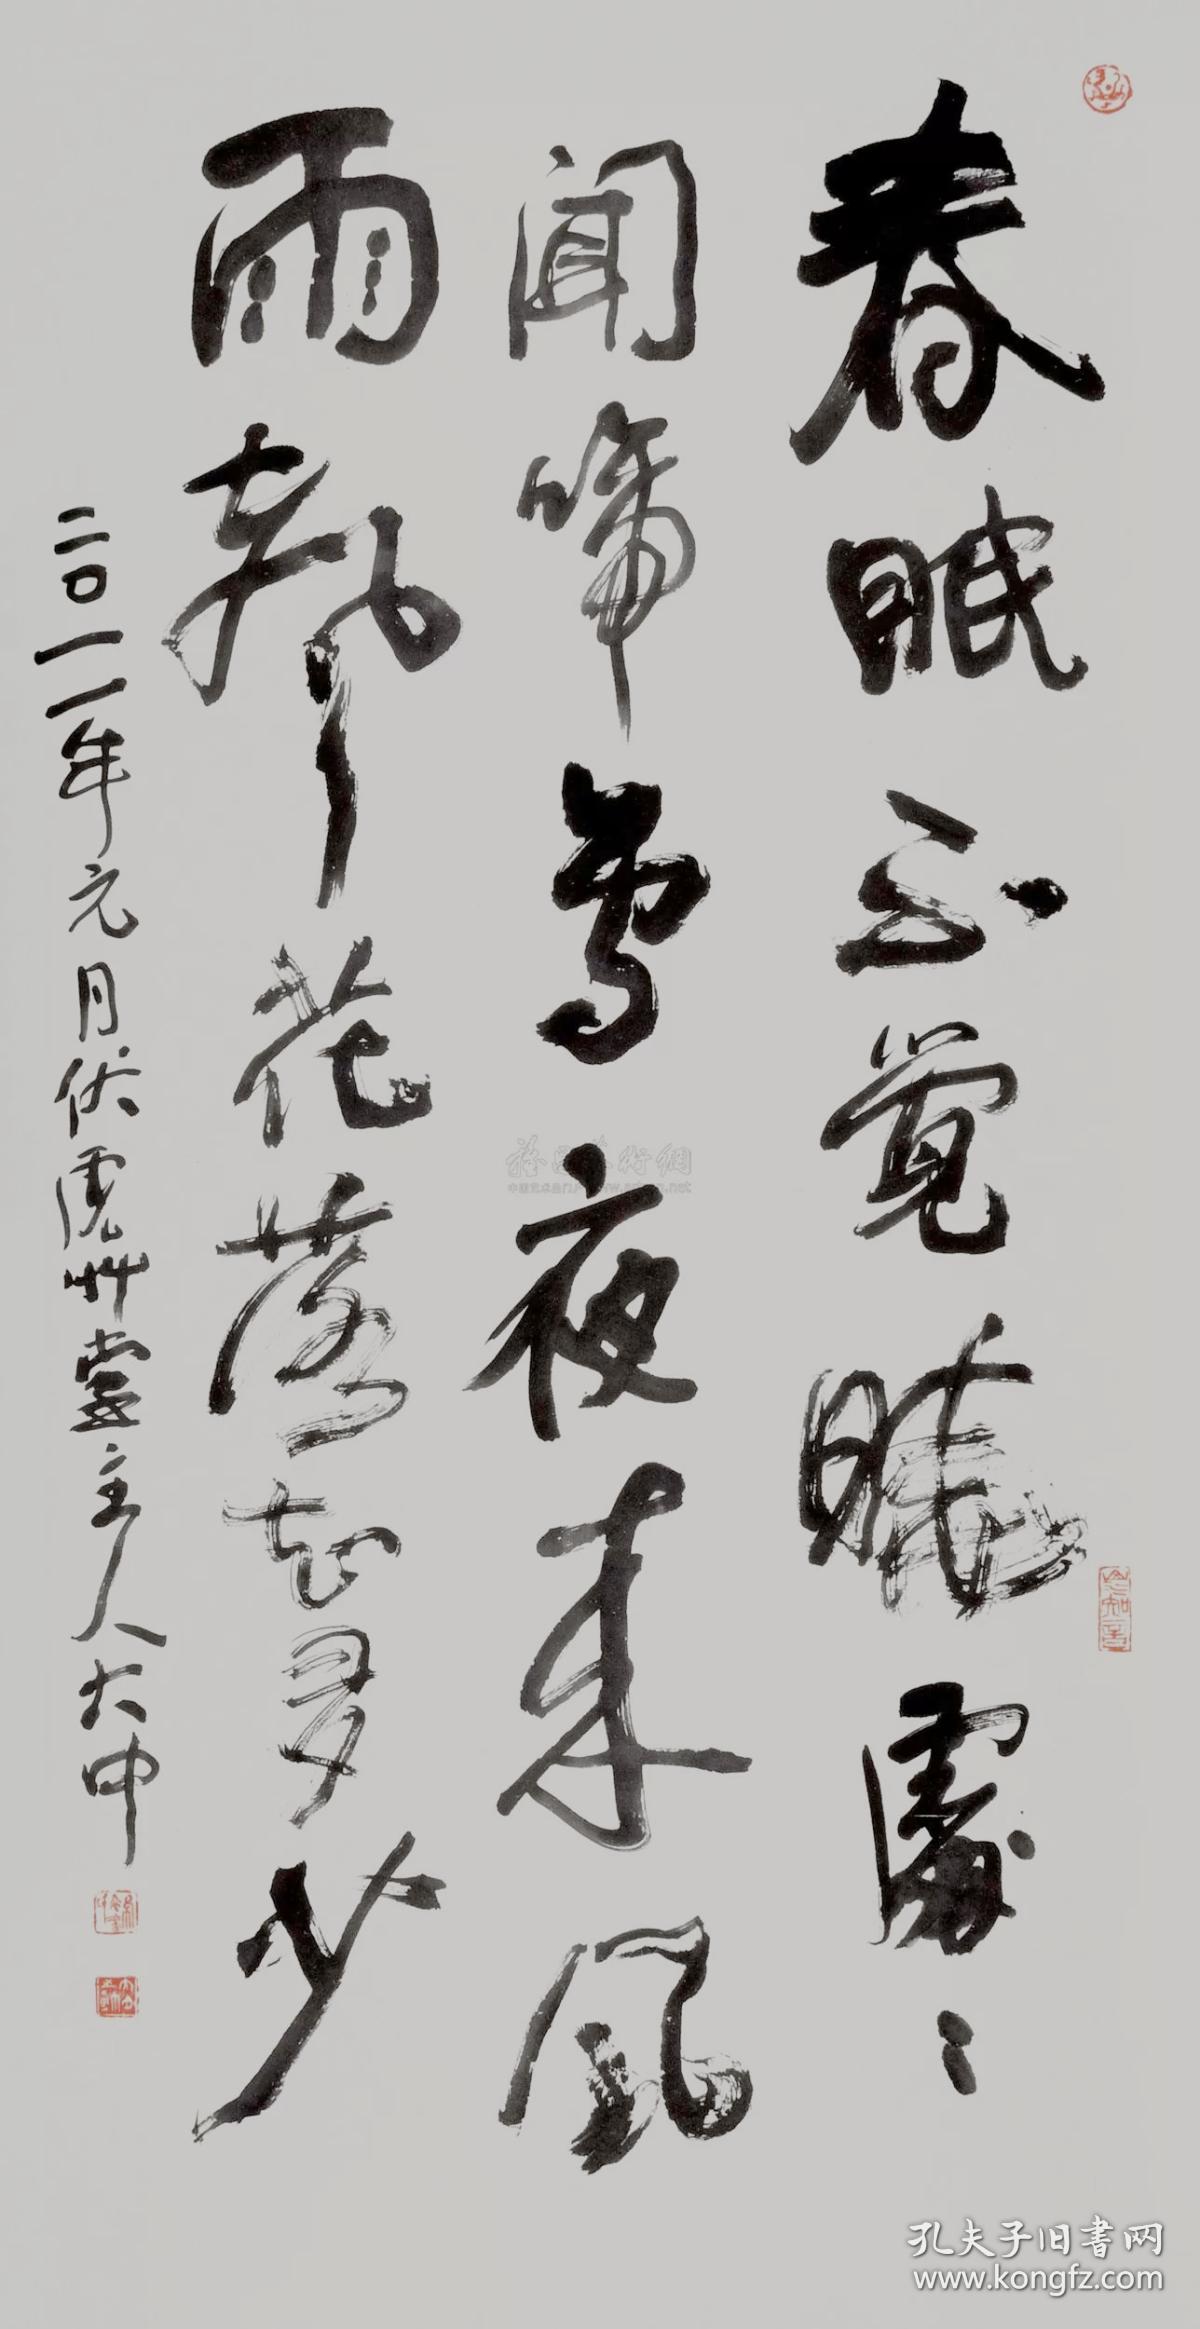 春眠不覺曉處〻
聞啼鳥夜來風
雨聲花落知多少
二〇一一年元月伏虎艸堂主人大中
孔夫子旧书网
www.kongfz.com